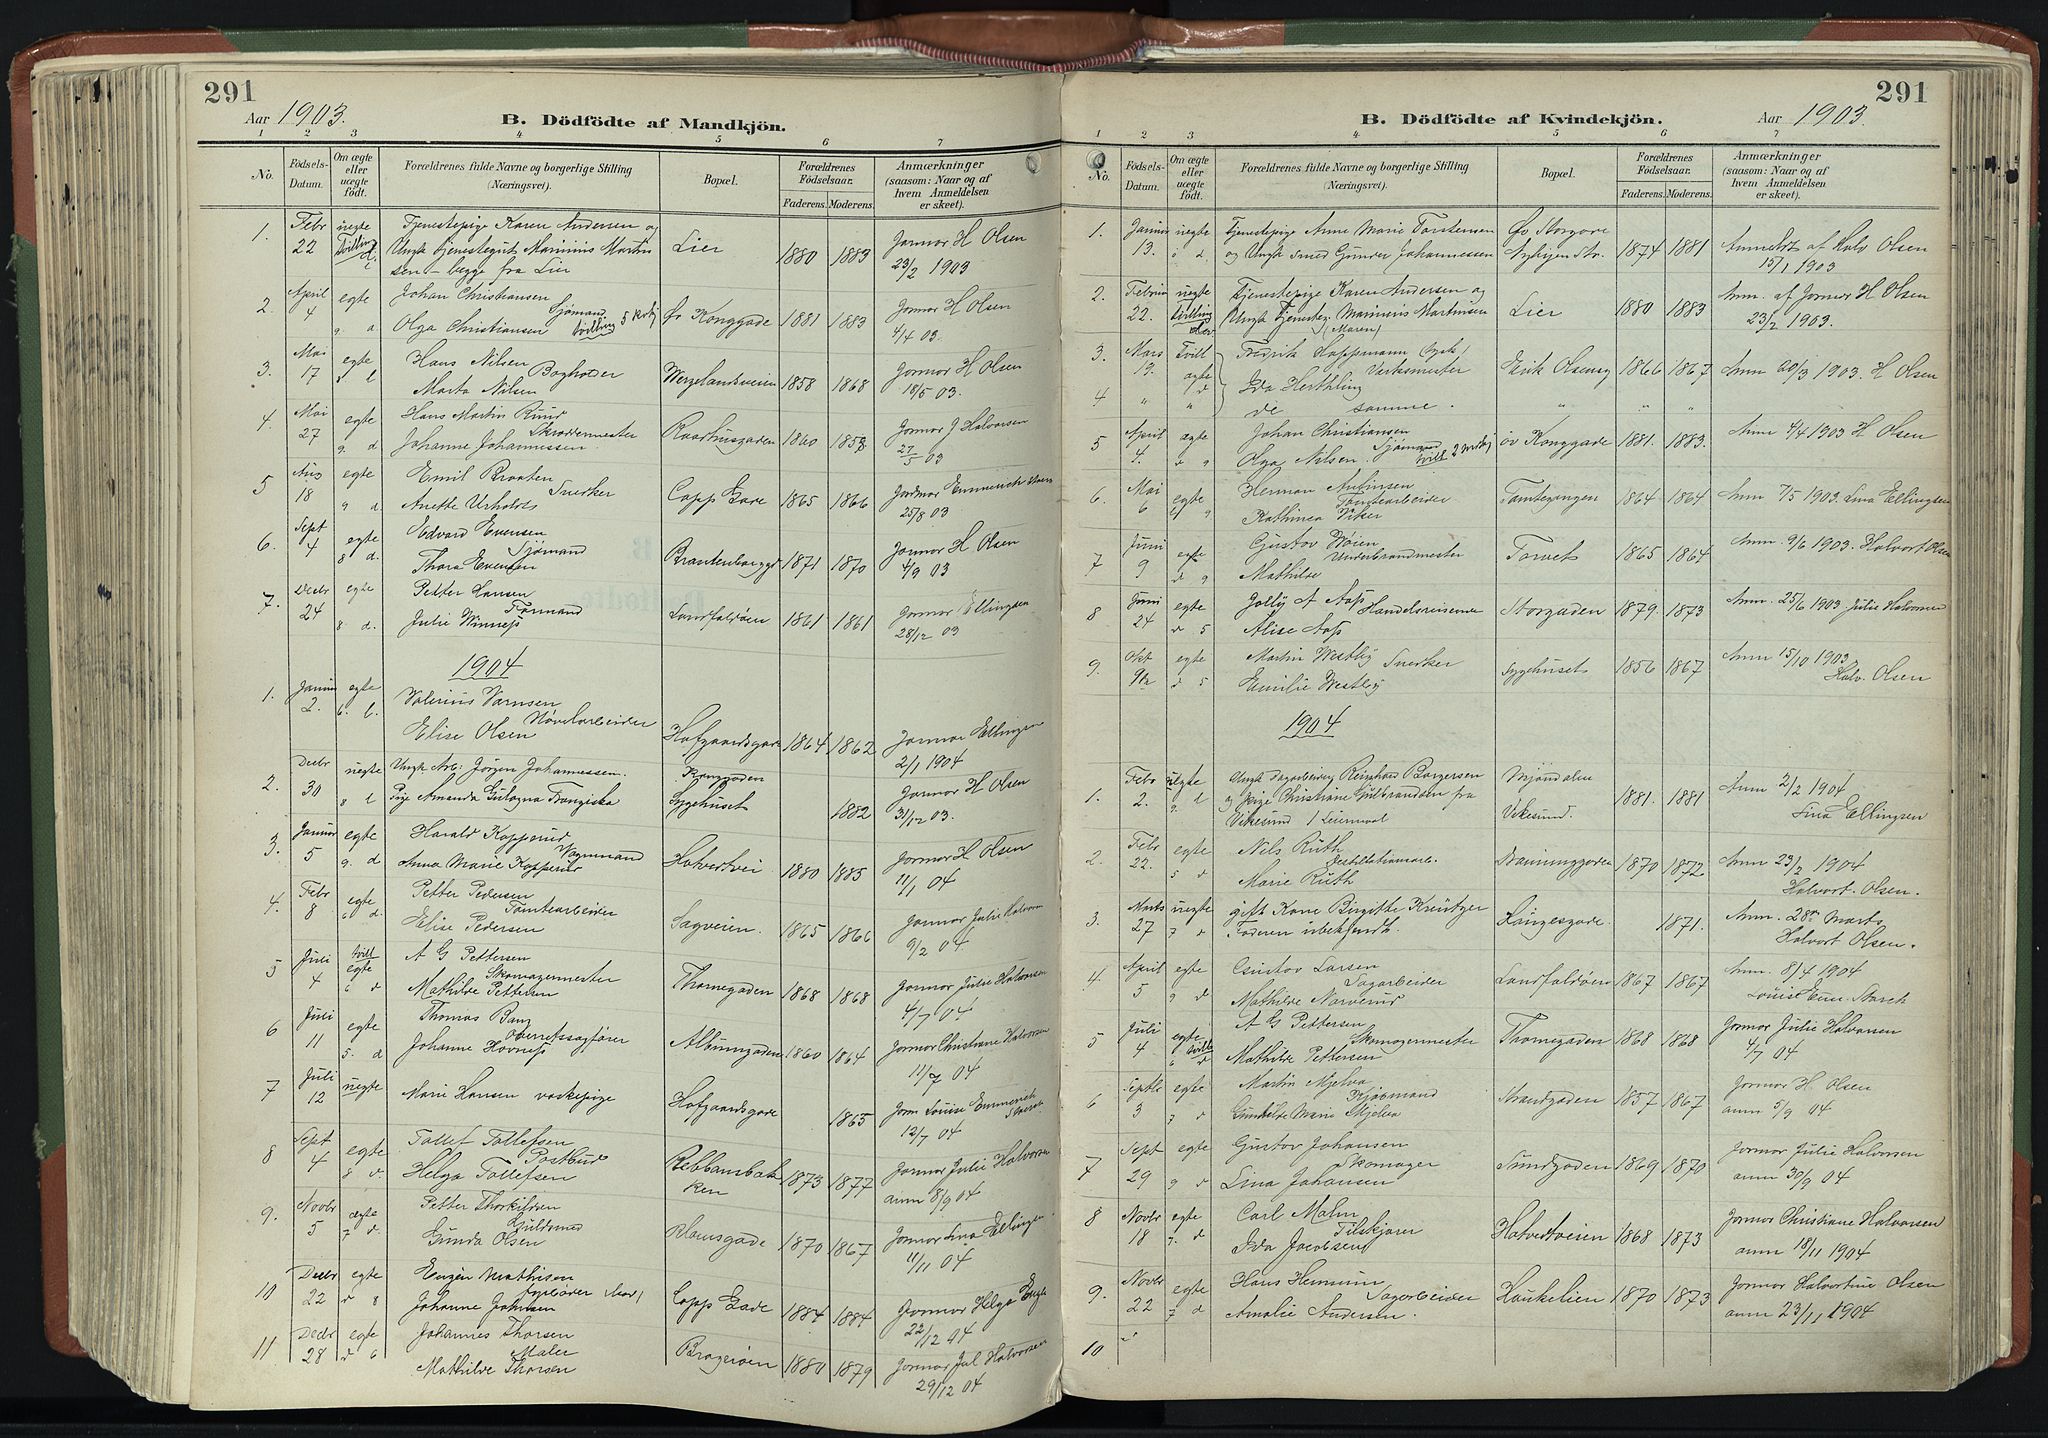 291
Aar 1903.
B. Dödfödte af Mandkjön.
1 2 3 4 5 6 7
No.
Födsels-Datum.
Om ægte eller uægte födt.
Forældrenes fulde Navne og borgerlige Stilling (Næringsvei).
Bopæl.
Forældrenes Födselsaar.
Faderens. Moderens.
Anmærkninger (saasom: Naar og af hvem Anmeldelsen er skeet).
1. Febr uegte Tjenestepige Karen Andersen og
22 Tvilling Ungk Tjenestegut Marinius Martin Lier 1880 1883 Jormor H Olsen
sen - begge fra Lier 23/2 1903
2. April egte Johan Christiansen Sjømand
4 Olga Christiansen Øv Konggade 1881 1883 Jormor H Olsen
4/4 03.
3. Mai egte Hans Nilsen Bogholder
17 Marta Nilsen Wergelandsveien 1858 1868 Jormor H Olsen
18/5 03.
4. Mai egte Hans Martin Ruud Skræddermester
27 9. d Johanne Johannessen Raadhusgaden 1860 Jormor J Halvorsen
27/5 03
5 Aug egte Emil Braaten Snekker
18 9 d. Anette Urholdt Copp Gade 1865 1866 Jordmor Emmerich
25/8 03
6. Sept egte Edvard Evensen Sjømand
4 8 d. Thora Evensen 1871 1870 Jormor H Olsen
4/9 03
7. Decbr egte Petter Hansen Formand
24 8. d. Julie Landfaldøen 1861 1861 Jormor Ellingsen
28/12 03
1904
1. Januar egte
2. Elise Olsen Høvlarbeider Hofgaardsgade 1864 1862 Jormor Ellingsen
2/1 1904
2. Decbr uegte Ungk Arb. Jörgen Johannessen. Konggaden
30 Pige Amanda Sygehuset 1882 Jormor H Olsen
31/12 03.
3. Januar egte Harald Kopperud Vognmand
5 9. d Anna Marie Kopperud Hotvetvei 1880 1885 Jormor H Olsen
11/1 04
4. Febr egte Petter Pedersen Tomtearbeider
8 6 d. Elise Pedersen Sagveien. 1865 1866 Jormor Julie Halvorsen
9/2 04
5 Juli tvill egte A G Pettersen Skomagermester
4 Mathilde Pettersen Thornegaden 1868 1868 Jormor Julie Halvorsen
4/7 04
6 Juli egte Thomas Bang Overretssagfører
11 5. d Johanne Albumgaden 1860 1864 Jormor Christiane Halvorsen
11/7 04
7 Juli uegte Marie Hansen vaskepige Hofgaardsgade 1865 Jorm Louise Emmerich Starck
12 12/7 04
8 Sept egte Tollef Tollefsen Postbud
4 8 d. Helga Tollefsen Rebbansbakken 1873 1877 Jormor Julie Halvorsen
anm 8/9 04
9. Novbr ægte Petter Thorkildsen Guldsmed
5 7 d. Gunda Olsen Klausgade 1870 1867 Jormor Lina Ellingsen
11/11 04
10 Decbr egte Eugen Mathisen
22 d 8 Johanne Johnsen Copp Gade 1884 1884 Jormor Helga
22/12 04
11 Decbr egte Johannes Thorsen Maler
28 d 6 Mathilde Thorsen Bragerøen 1880 1879 Jormor Jul Halvorsen
29/12 04
291
Aar 1903.
B. Dödfödte af Kvindekjön.
1 2 3 4 5 6 7
No.
Födsels-Datum.
Om ægte eller uægte födt.
Forældrenes fulde Navne og borgerlige Stilling (Næringsvei).
Bopæl.
Forældrenes Födselsaar.
Faderens. Moderens.
Anmærkninger (saasom: Naar og af hvem Anmeldelsen er skeet).
1. Januar uegte Tjenestepige Anne Marie Torstensen Øv Storgade
13. og Ungk Smed Gunder Johannessen Nybyen Str. 1874 1881 Anmeldt af Halv Olsen
15/1 1903
2. Februar uegte Tjenestepige Karen Andersen og
22. Tvilling Ungk Tjenesteg. Marinius Martinsen Lier 1880 1883 Anm. af Jormor H Olsen
(Maren) 23/2 1903.
3. Mars Tvill Fredrik Hoppmann tysk
13. ægte Ida Herthling Verksmester Eirik Olsensg 1866 1867 Anm 20/3 1903. H Olsen
4 " " de samme. " " "
5 April ægte Johan Christiansen Sjømand
4. Olga Nilsen. øv Konggade 1881. 1883. Anm 4/4 1903 H Olsen
6. Mai egte Herman Antinsen Tomtearbeider
6 Kathinca Viker Tomtegangen 1864 1864 Anm 7/5 1903. Lina Ellingsen
7 Juni egte Gustov Woien Underbrandmester
9 d 9 Mathilde Torvet 1865 1864 Anm 9/6 1903. Halvort Olsen
8 Juni egte Jolly A Aass Handelsreisende
24 d 5 Alise Aass Storgaden 1879. 1873 Anm. 25/6 1903. Julie Halvorsen
9. Okt egte Martin Westby Snekker
5 Emilie Westby Sygehuset 1856 1867 Anm 15/10 1903
Halv. Olsen
1904
1. Febr uegte Ungk Sagarbeider Reinhard Borgersen Mjøndalen
2. d og pige Christiane Gulbrandsen fra 1881. 1881 Anm 2/2 1904
Vikesund Vikesund. Lina Ellingsen
2. Febr egte Nils Ruth Destilationarb.
22. 5 d Marie Ruth 1870 1872. Anm 23/2 1904
Halvort. Olsen.
3. Marts uegte gift Kone Birgitte Kreutzer
27 7 d Faderen ubekjendt. Lüngesgade. 1871. Anm. 28de Marts
Halvort Olsen.
4. April egte Gustov Larsen Sagarbeider
5 9 d Mathilde Landfaldøen 1867 1867 Anm. 8/4 1904
Louise Emm. Starck
5 Juli egte A G Pettersen Skomagermester
4 tvill Mathilde Pettersen Thornegaden 1868 1868 Jormor Julie Halvorsen
4/7 04
6 Septbr egte Martin Mjelva Kjøbmand
3 7 d Gunhilde Marie Mjelva Strandgaden 1857 1867 Jormor H. Olsen
anm 5/9 04
7 Sept egte Gustov Johansen Skomager
29 9 d Lina Johansen Sundgaden 1869 1870 Jormor Julie Halvorsen
anm 30/9 04
8 Novbr egte Carl Malm Tilskjærer
18 7. d Ida Jacobsen Hotvedtveien 1868 1873 Jormor Christiane Halvorsen
anm 18/11 1904
9. Novbr egte Hans Hemum Sagarbeider
22 7 d Amalie Andersen. Haukelien 1870 1873 Jormor Halvortine Olsen
anm 23/11 1904
10